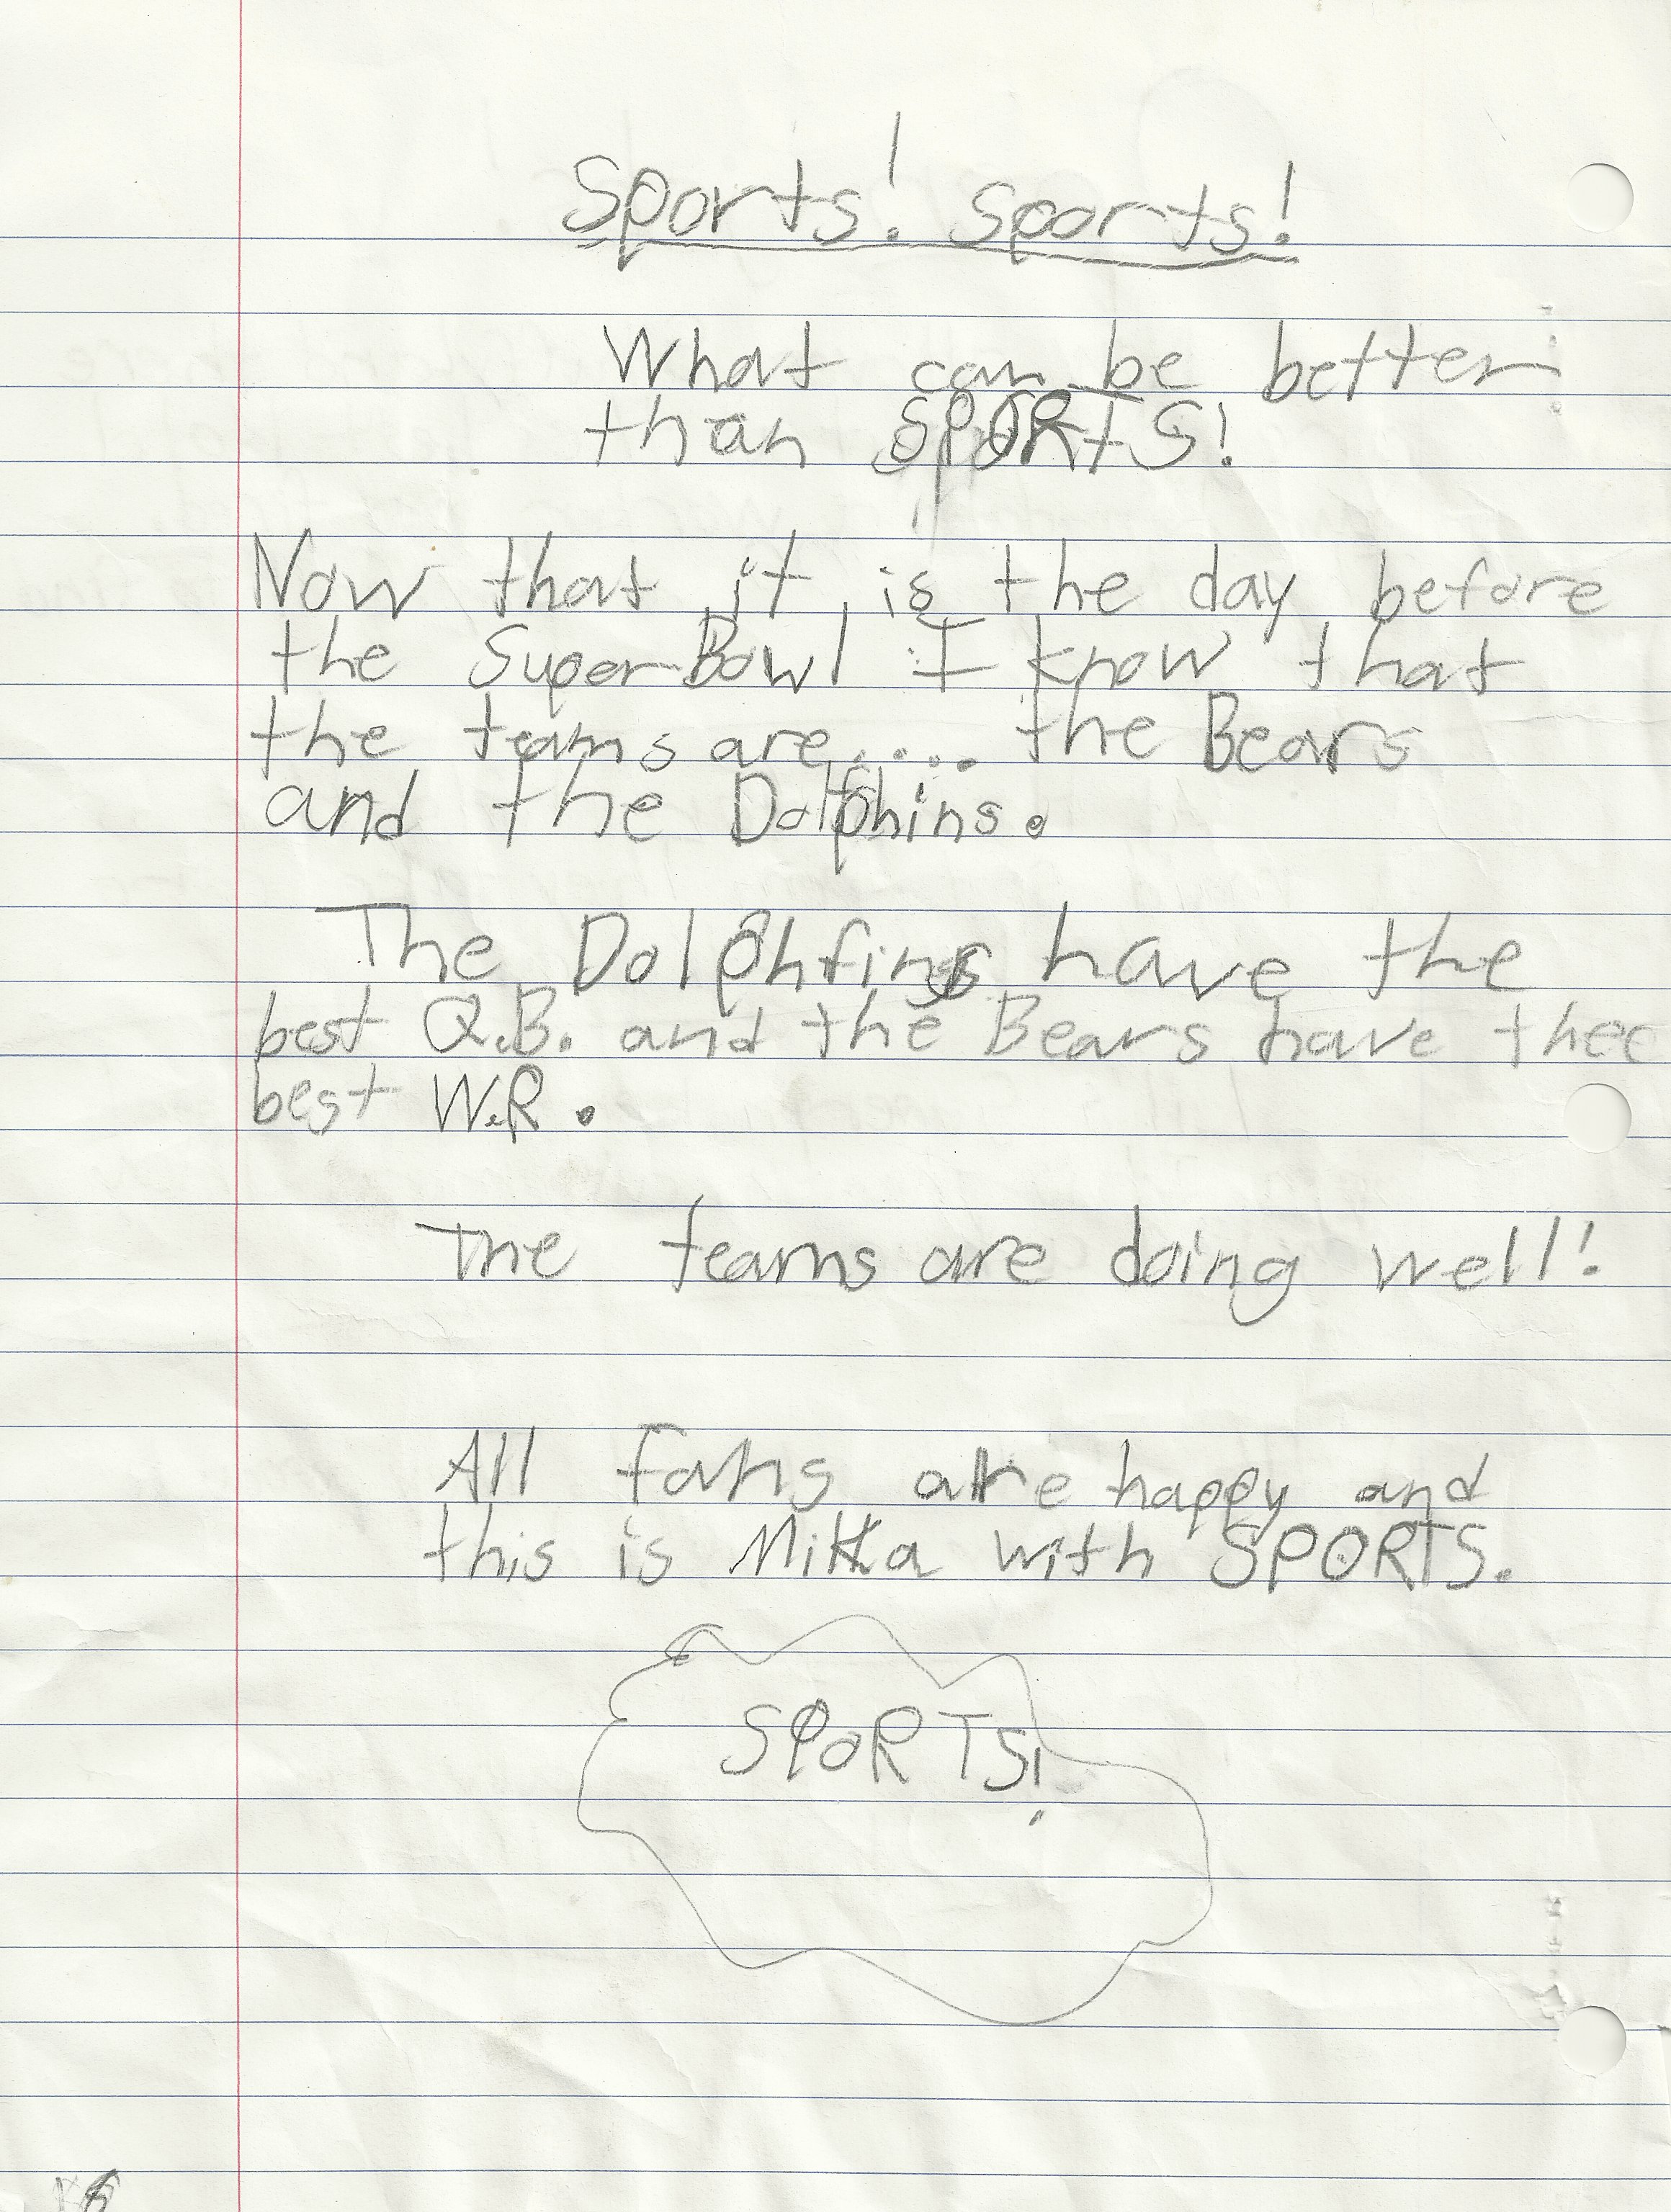 Sports! Sports!
What can be better
than SPORTS!
Now that it is the day before
the SuperBowl I know that
the teams are.... the Bears
and the Dolphins.
The Dolphfins have the
best Q.B. and the Bears have thee
best W.R.
The teams are doing well!
All fans are happy and
this is Mikka with SPORTS.
SPORTS!
6